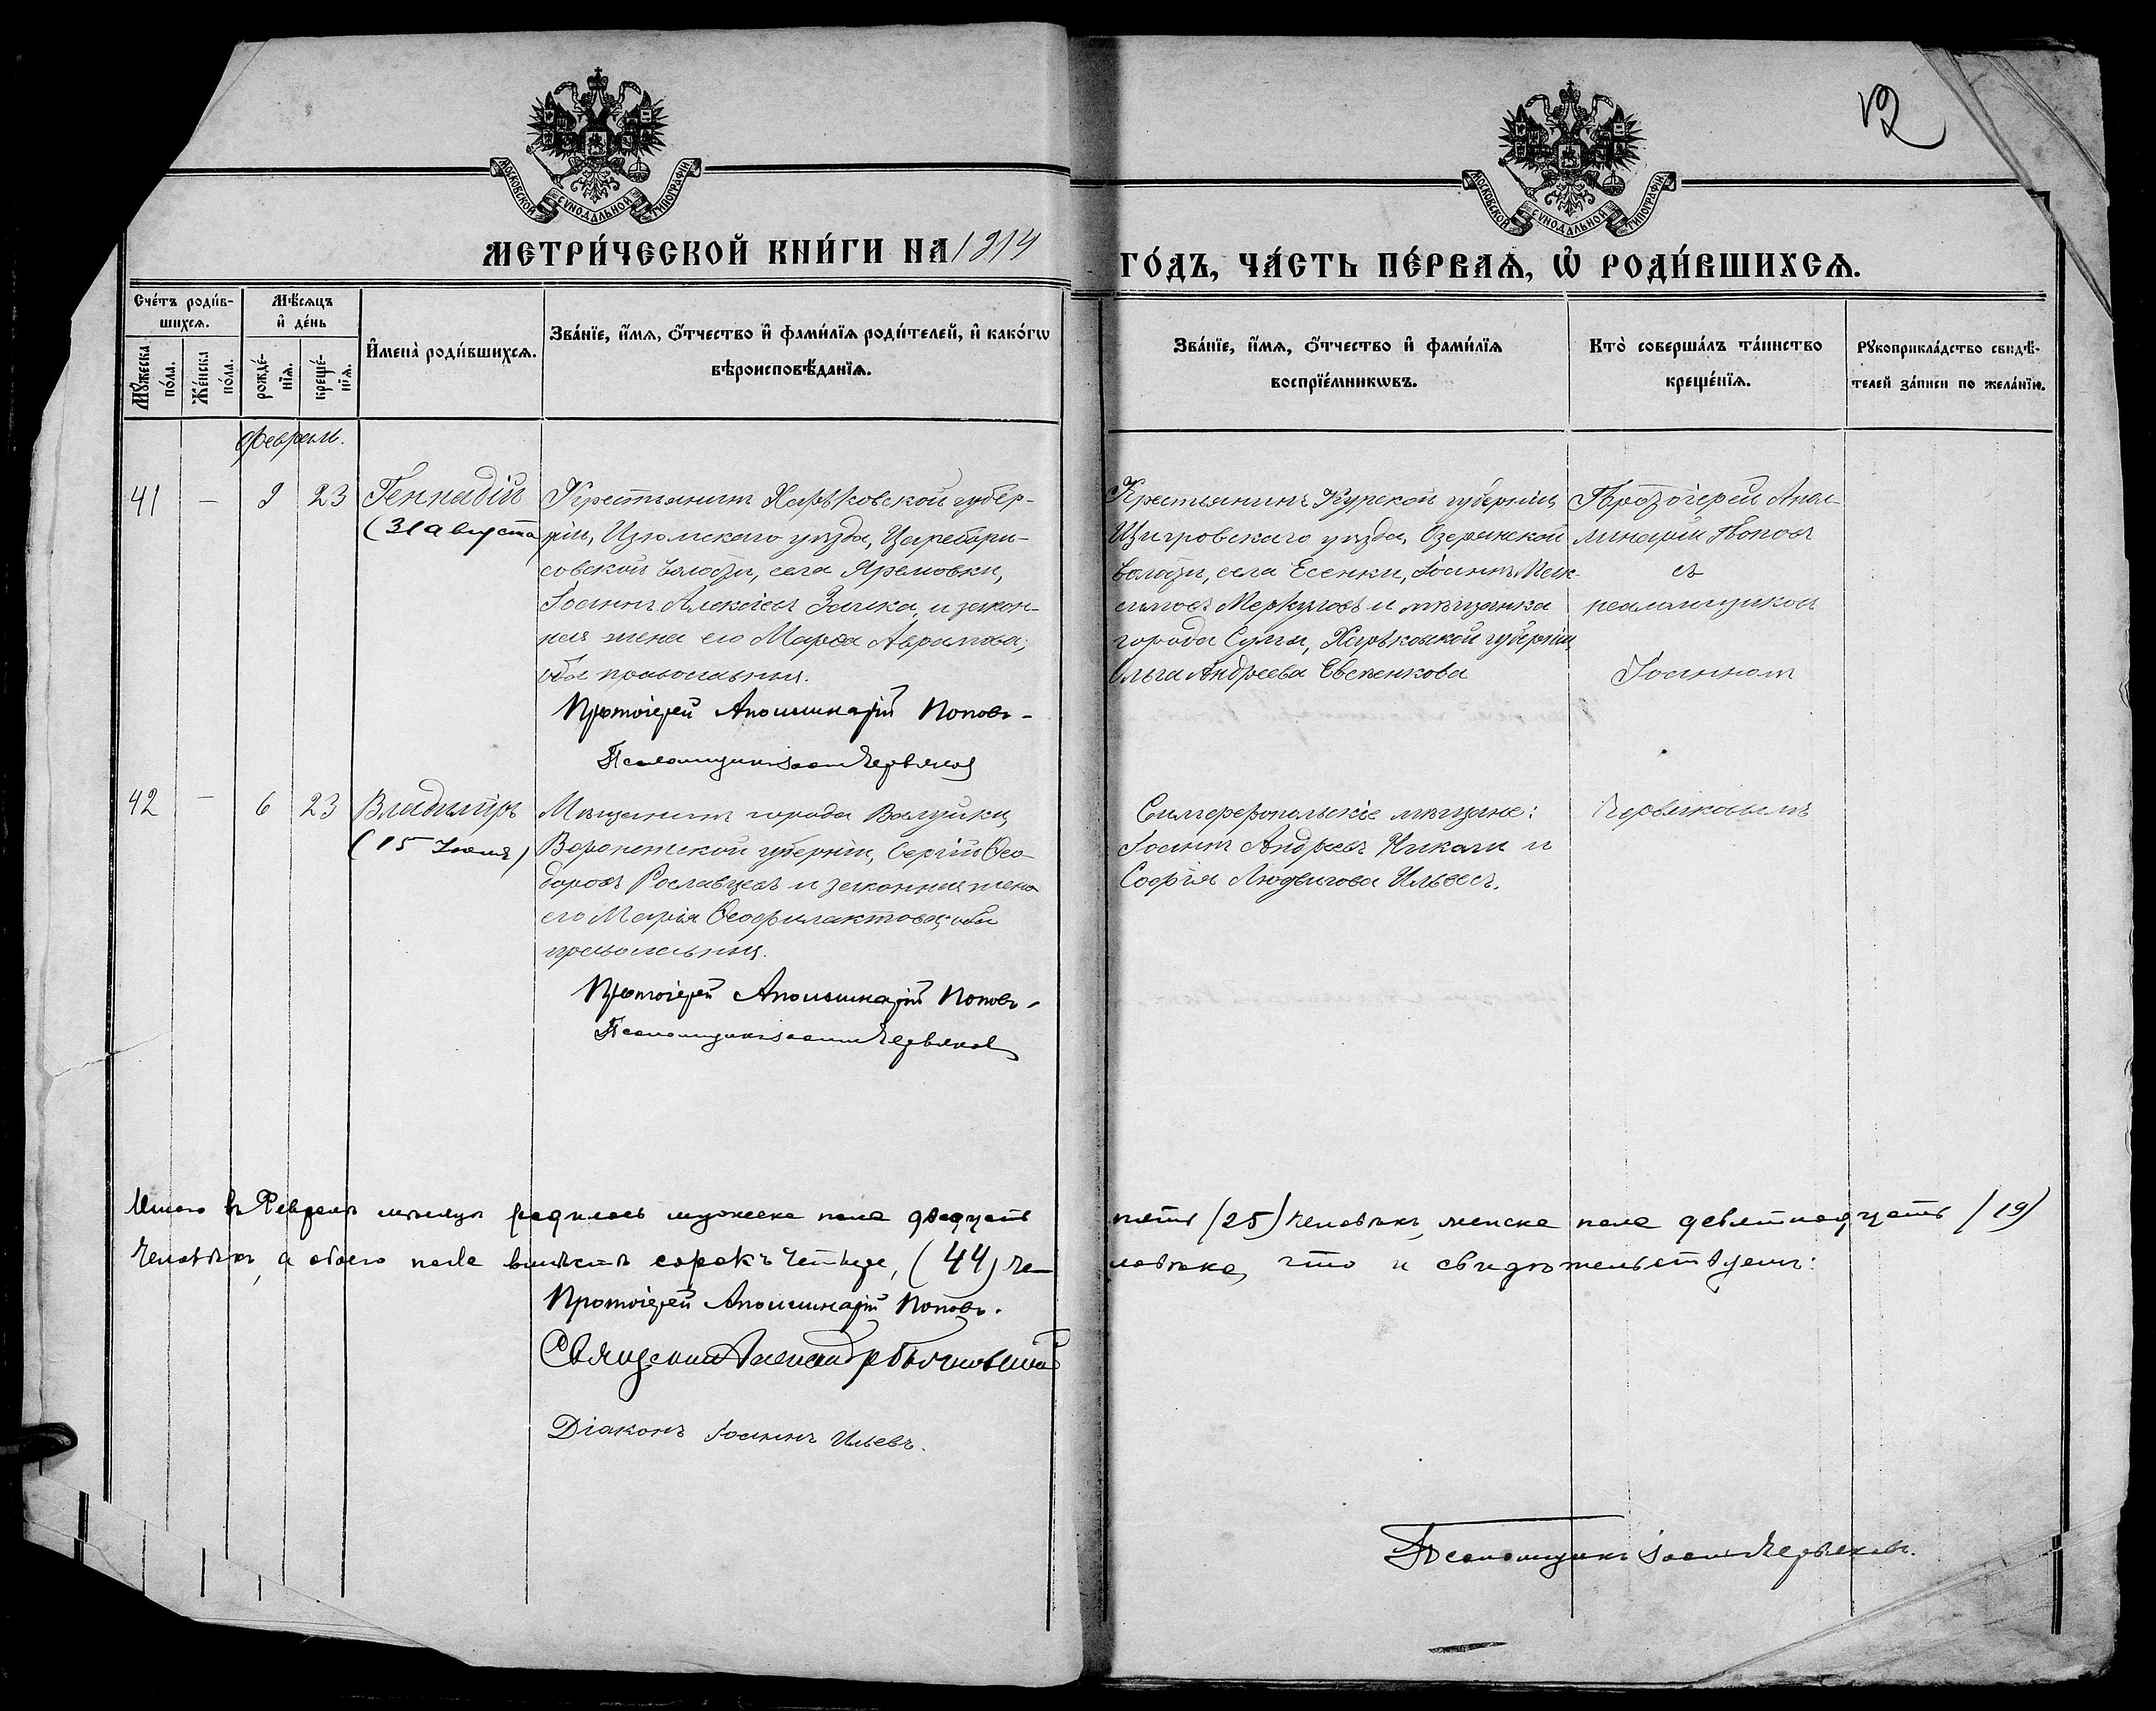 МОСКОВСКОЙ СѴНОДАЛЬНОЙ ТИПОГРАФІИ
МОСКОВСКОЙ СѴНОДАЛЬНОЙ ТИПОГРАФІИ
12
МЕТРИ́ЧЕСКОЙ КНИ́ГИ НА 1914
ГО́ДЪ, ЧА́СТЬ ПЕ́РВАѦ, Ѡ҆ РОДИ́ВШИХСѦ.
Сче́тъ роди́в-
шихсѧ.
Мꙋ́жеска по́ла.
Же́нска по́ла.
Мѣ́сѧцъ
и҆ де́нь
рожде́-
нїѧ.
креще́-
нїѧ.
И҆мена̀ роди́вшихсѧ.
Зва́нїе, и҆́мѧ, ѻ҆́тчество и҆ фами́лїѧ роди́телей, и҆ како́гѡ
вѣроисповѣ́данїѧ.
Зва́нїе, и҆́мѧ, ѻ҆́тчество и҆ фами́лїѧ
воспрїе́мникѡвъ.
Кто̀ соверша́лъ та́инство
креще́нїѧ.
Рꙋкоприкла́дство свидѣ́-
телей за́писи по жела́нїю.
Февраль.
41 — 9 23 Геннадій
(31 августа
Крестьянинъ Харьковской губер-
ніи, Изюмскаго уѣзда, Царебори-
совской волости, села Яремовки,
Іоаннъ Алексіевъ Заика, и закон-
ная жена его Марѳа Аврамова;
оба православныя.
Протоіерей Аполлинарій Поповъ-
Псаломщикъ Іоаннъ Червяковъ
Крестьянинъ Курской губерніи,
Щигровскаго уѣзда, Озеранской
волости, села Есенки, Іоаннъ Мак-
симовъ Меркуловъ и мѣщанка
города Сумы, Харьковской губерніи
Ольга Андреева Евсенкова
Протоіерей Апол-
линарій Поповъ
съ
псаломщикомъ
Іоанномъ
42 — 6 23 Владиміръ
(15 Іюля)
Мѣщанинъ города Валуйки,
Воронежской губерніи, Сергій Ѳео-
доровъ Рославцевъ и законная жена
его Марія Ѳеофилактова; оба
православныя.
Протоіерей Аполлинарій Поповъ.
Псаломщикъ Іоаннъ Червяковъ
Симферопольскіе мѣщане:
Іоаннъ Андреевъ Чикали и
Софія Людвигова Ильвесъ.
Червяковымъ
Итого въ Февралѣ мѣсяцѣ родилось мужеска пола двадцать
пять (25) человѣкъ, женска пола девятнадцать (19)
человѣкъ, а обоего пола вмѣстѣ сорокъ четыре, (44) че-
ловѣка, что и свидѣтельствуемъ:
Протоіерей Аполлинарій Поповъ.
Священникъ Александръ
Діаконъ Іоаннъ Ильевъ.
Псаломщикъ Іоаннъ Червяковъ.